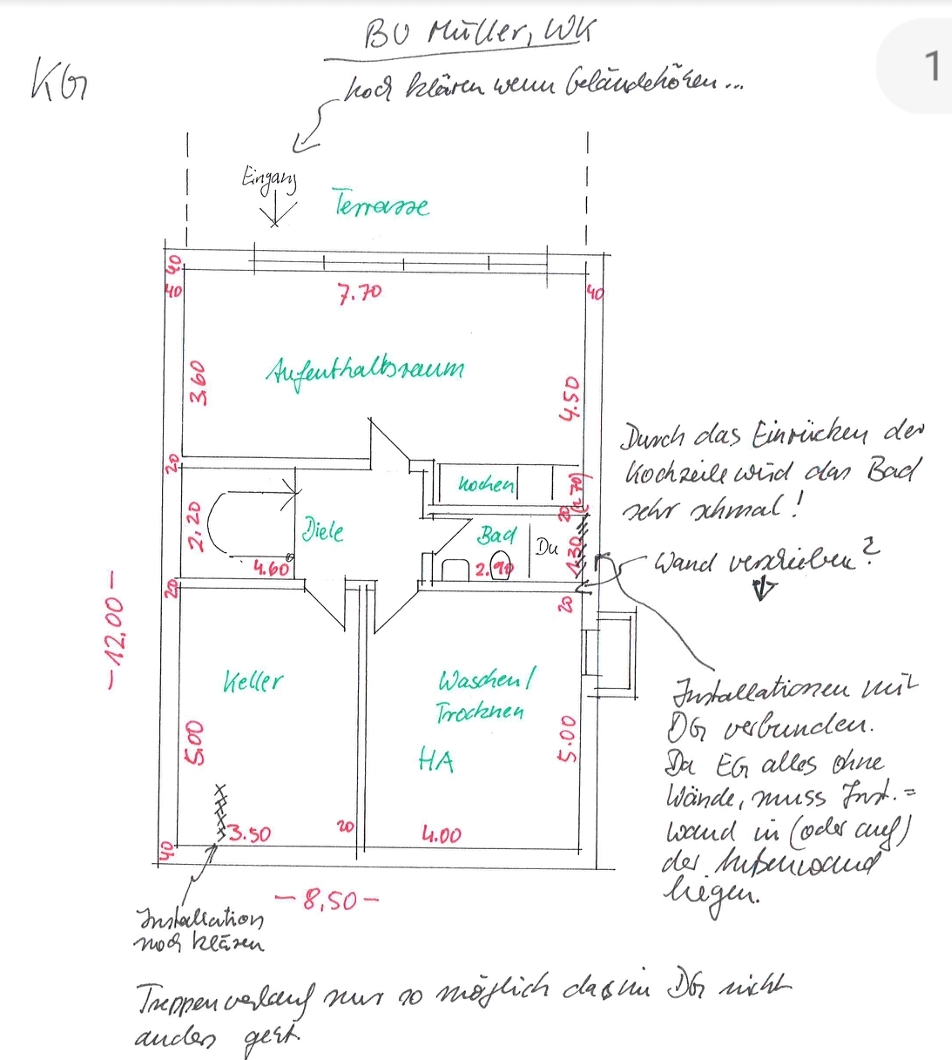 BU Müller, WK
1
KG
noch klären wenn Geländehöhen...
Eingang
Terrasse
40
40
7.70
40
3.60
Aufenthaltsraum
4.50
20
Kochen
(2.70)
20
2.20
Diele
Bad
Du
1.30
4.60
2.90
20
20
-12.00-
Keller
Waschen/
Trocknen
HA
5.00
5.00
3.50
20
4.00
40
-8,50-
Durch das Einrücken der
Kochzeile wird das Bad
sehr schmal!
Wand verschieben?
Installationen mit
DG verbunden.
Da EG alles ohne
Wände, muss Inst.=
wand in (oder auf)
der Außenwand
liegen.
Installation
noch klären
Treppenverlauf nur so möglich da es im DG nicht
anders geht.